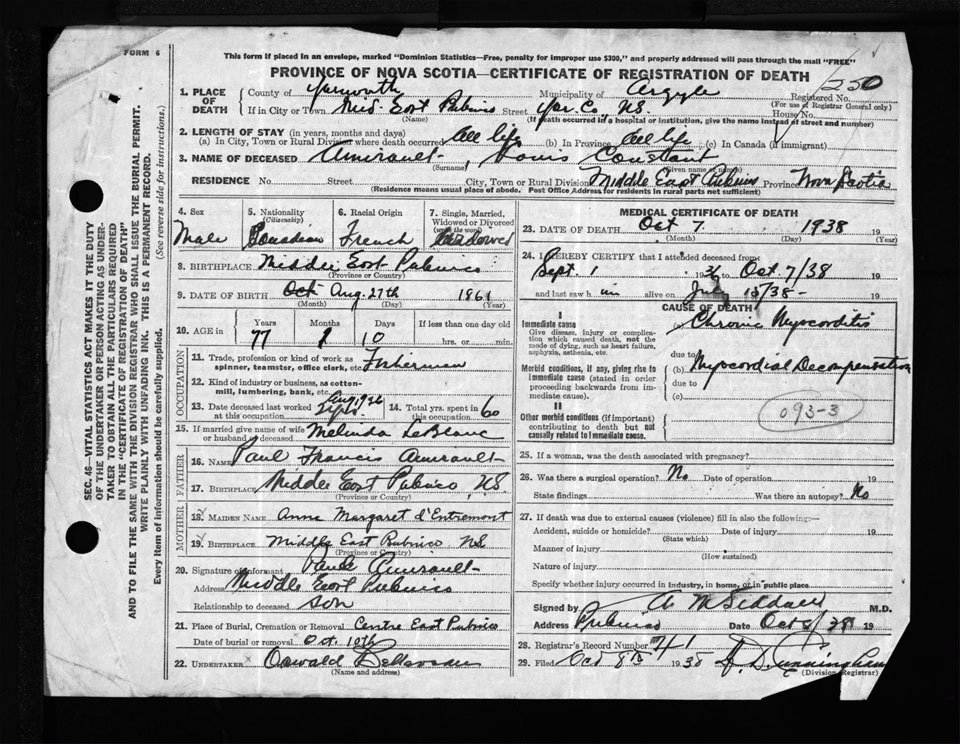 FORM 6
This form if placed in an envelope, marked "Dominion Statistics—Free, penalty for improper use $300," and properly addressed will pass through the mail "FREE"
PROVINCE OF NOVA SCOTIA—CERTIFICATE OF REGISTRATION OF DEATH
SEC. 46—VITAL STATISTICS ACT MAKES IT THE DUTY
OF THE UNDERTAKER OR PERSON ACTING AS UNDER-
TAKER TO OBTAIN ALL THE PARTICULARS REQUIRED
IN THE "CERTIFICATE OF REGISTRATION OF DEATH"
AND TO FILE THE SAME WITH THE DIVISION REGISTRAR WHO SHALL ISSUE THE BURIAL PERMIT.
WRITE PLAINLY WITH UNFADING INK. THIS IS A PERMANENT RECORD.
Every item of information should be carefully supplied. (See reverse side for instructions.)
1. PLACE OF DEATH County of Yarmouth Municipality of Argyle Registered No. 250
(For use of Registrar General only)
If in City or Town Mid. East Pubnico Street Yar. Co., N.S. House No.
(Name) (If death occurred in a hospital or institution, give the name instead of street and number)
2. LENGTH OF STAY (in years, months and days)
(a) In City, Town or Rural Division where death occurred All life (b) In Province All life (c) In Canada (if immigrant)
3. NAME OF DECEASED Amirault, Louis Constant
(Surname) (Given name or names)
RESIDENCE No. Street City, Town or Rural Division Middle East Pubnico Province Nova Scotia
(Residence means usual place of abode. Post Office Address for residents in rural parts not sufficient)
4. Sex Male
5. Nationality (Citizenship) Canadian
6. Racial Origin French
7. Single, Married, Widowed or Divorced (write the word) Widowed
8. BIRTHPLACE Middle East Pubnico
(Province or Country)
9. DATE OF BIRTH Oct Aug. 27th 1861
(Month) (Day) (Year)
10. AGE in Years 77 Months 1 Days 10 If less than one day old hrs. or min.
OCCUPATION
11. Trade, profession or kind of work as spinner, teamster, office clerk, etc. Fisherman
12. Kind of industry or business, as cotton-mill, lumbering, bank, etc.
13. Date deceased last worked at this occupation
14. Total yrs. spent in this occupation 60
15. If married give name of wife or husband of deceased Melinda LeBlanc
FATHER
16. NAME Paul Francis Amirault
17. BIRTHPLACE Middle East Pubnico, NS
(Province or Country)
MOTHER
18. MAIDEN NAME Anna Margaret d'Entremont
19. BIRTHPLACE Middle East Pubnico NS
(Province or Country)
20. Signature of informant Amirault
Address Middle East Pubnico
Relationship to deceased Son
21. Place of Burial, Cremation or Removal Centre East Pubnico
Date of burial or removal Oct. 10th
22. UNDERTAKER Oswald
(Name and address)
MEDICAL CERTIFICATE OF DEATH
23. DATE OF DEATH Oct 7 1938
(Month) (Day) (Year)
24. I HEREBY CERTIFY that I attended deceased from
Sept. 1 1936 to Oct 7/38 19
and last saw him alive on July 15/38- 19
CAUSE OF DEATH
I
Immediate cause (a) Chronic Myocorditis
Give disease, injury or complication which caused death, not the mode of dying, such as heart failure, asphyxia, asthenia, etc.
due to
Morbid conditions, if any, giving rise to immediate cause (stated in order proceeding backwards from immediate cause). (b) Myocordial Decompensation
due to
(c)
093-3
II
Other morbid conditions (if important) contributing to death but not causally related to immediate cause.
25. If a woman, was the death associated with pregnancy?
26. Was there a surgical operation? No Date of operation 19
State findings Was there an autopsy? No
27. If death was due to external causes (violence) fill in also the following:—
Accident, suicide or homicide? Date of injury 19
(State which)
Manner of injury
(How sustained)
Nature of injury
Specify whether injury occurred in industry, in home, or in public place
Signed by A M Siddall M.D.
Address Pubnico Date Oct 8/38 19
28. Registrar's Record Number 741
29. Filed Oct 8th 1938 Cunningham
(Division Registrar)